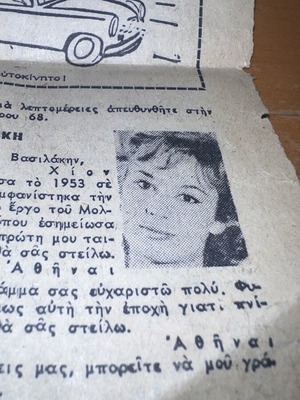 ὐτοκίνητο!
ιὰ λεπτομέρειες ἀπευθυνθῆτε στὴν
ρου 68.
ΚΗ
Βασιλάκην,
Χίον
σα τὸ 1953 σὲ
μφανίστηκα τὴν
ὸ ἔργο τοῦ Μολ-
που ἐσημείωσα
πρώτη μου ται-
θὰ σᾶς στείλω.
Ἀθῆναι
άμμα σας εὐχαριστῶ πολύ. Φυ-
ως αὐτὴ τὴν ἐποχὴ γιατὶ πνί-
θὰ σᾶς στείλω.
Ἀθῆναι
εις μας, μπορεῖτε νὰ μοῦ γρά-